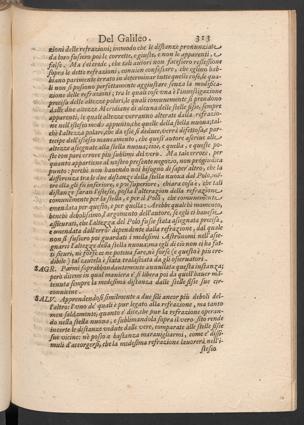 Del Galileo. 323
zioni delle refrazioni; in modo che le distanze pronunziate
da loro fussero poi le corrette, e giuste, e non le apparenti, e
false. Ma s'è credè, che tali autori non facessero reflessione
sopra le dette refrazioni, convien confessare, che eglino hab-
biano parimente errato in determinar tutte quelle cose, le qua-
li non si possono perfettamente aggiustare senza la modifica-
zione delle refrazioni; tra le quali cose una è l'investigazione
precisa delle altezze polari, le quali comunemente si prendono
dalle due altezze Meridiane di alcuna delle stelle fisse, sempre
apparenti, le quali altezze verranno alterate dalla refrazio-
ne nell'istesso modo appunto, che quelle della stella nuova; tal-
chè l'altezza polare, che da esse si deduce, verrà difettosa, e par-
tecipe dell'istesso mancamento, che questi autori ascrive alle
altezze assegnate alla stella nuova; cioè, e quella, e queste po-
ste con pari errore più sublimi del vero. Ma tale errore, per
quanto appartiene al nostro presente negozio, non progiudica
punto: perchè non havendo noi bisogno di saper altro, che la
differenza tra le due distanze della stella nuova dal Polo, men-
tre ella gli fu inferiore, e poi superiore, chiara cosa è, che tali
distanze saran l'istesse, posta l'alterazione della refrazione,
comunemente per la stella, e per il Polo, che comunemente
emendata per questo, e per quella. Avrebbe qualche momento,
benchè debolissimo, l'argomento dell'autore, se egli ci havesse
assicurati, che l'altezza del Polo fusse stata assegnata precisa,
e emendata dall'errore dependente dalla refrazione, dal quale
non si fussero poi guardati i medesimi Astronomi nell'asse-
gnarci l'altezze della stella nuova; ma egli di ciò non ci ha fat-
ti sicuri, nè forse ce ne poteva fare, nè forse (e questo è più cre-
dibile) tal cautela è stata tralasciata da gli osservatori.
SAGR. Parmi soprabbondantemente annullata questa instanza;
però ditemi in qual maniera e' si libera poi da quell'haver man-
tenuta sempre la medesima distanza dalle stelle fisse sue cir-
convicine.
SALV. Apprendendosi similmente a due fili ancor più deboli del-
l'altro: l'uno de' quali è pur legato alla refrazione, ma tanto
men saldamente, quanto è dice, che pur la refrazione operan-
do nella stella nuova, e sublimandola sopra il vero sito rende
incerte le distanze vedute dalle vere, comparate alle stelle fisse
sue vicine: nè posso a bastanza maravigliarmi, come e' dissi-
muli d'accorgersi, che la medesima refrazione lavorerà nell'i-
stesso